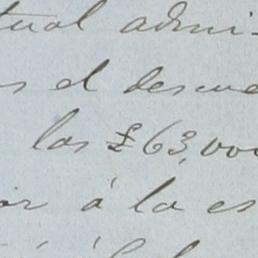 tual admi-
s el descue
las £63,000
or á la es